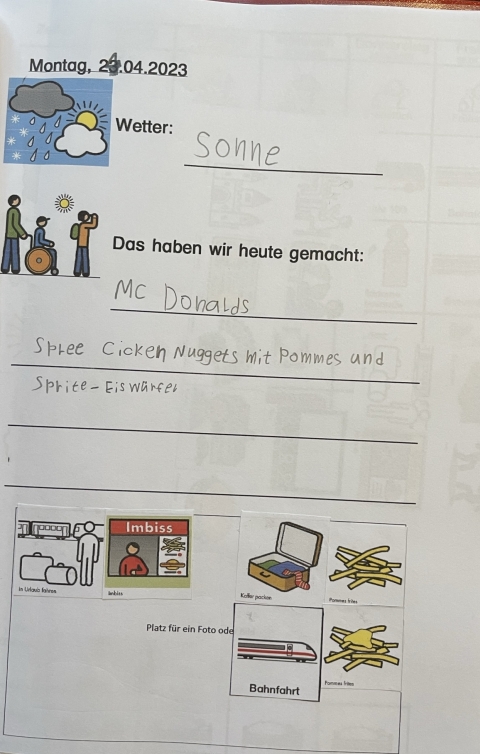 Montag, 24.04.2023
Wetter: Sonne
Das haben wir heute gemacht:
Mc Donalds
Spree Cicken Nuggets mit Pommes und
Sprite-Eiswürfel
Imbiss
in Urlaub fahren
Imbiss
Koffer packen
Pommes frites
Platz für ein Foto ode
Bahnfahrt
Pommes frites